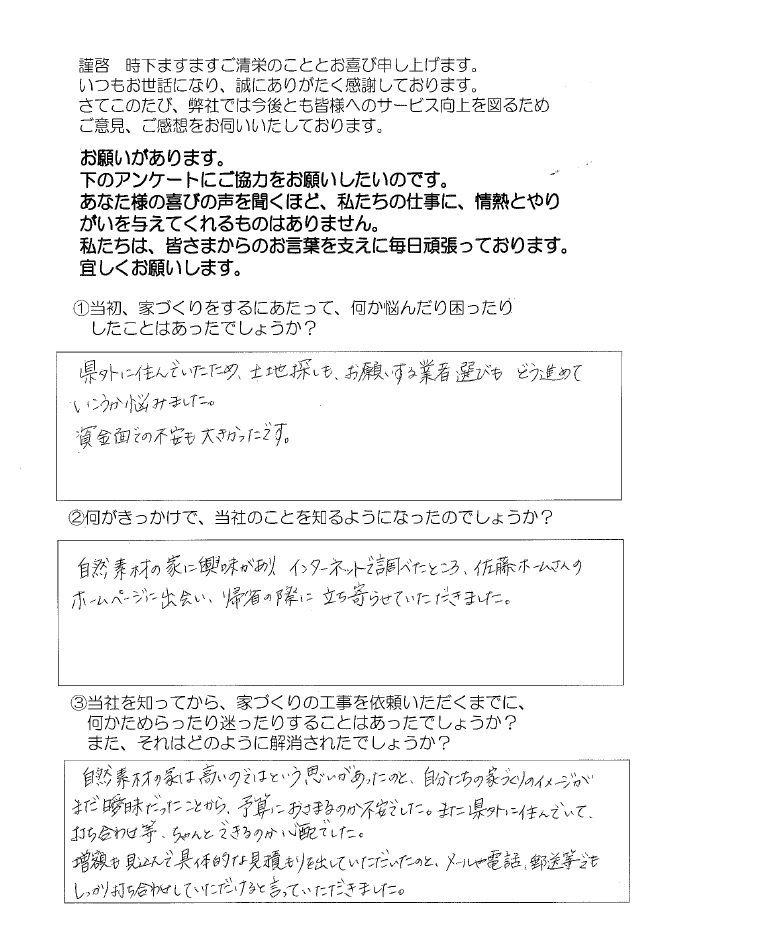 謹啓　時下ますますご清栄のこととお喜び申し上げます。
いつもお世話になり、誠にありがたく感謝しております。
さてこのたび、弊社では今後とも皆様へのサービス向上を図るため
ご意見、ご感想をお伺いいたしております。
お願いがあります。
下のアンケートにご協力をお願いしたいのです。
あなた様の喜びの声を聞くほど、私たちの仕事に、情熱とやり
がいを与えてくれるものはありません。
私たちは、皆さまからのお言葉を支えに毎日頑張っております。
宜しくお願いします。
①当初、家づくりをするにあたって、何か悩んだり困ったり
したことはあったでしょうか？
県外に住んでいたため、土地探しも、お願いする業者選びも どう進めて
いこうか悩みました。
資金面での不安も大きかったです。
②何がきっかけで、当社のことを知るようになったのでしょうか？
自然素材の家に興味があり、インターネットで調べたところ、佐藤ホームさんの
ホームページに出会い、帰省の際に立ち寄らせていただきました。
③当社を知ってから、家づくりの工事を依頼いただくまでに、
何かためらったり迷ったりすることはあったでしょうか？
また、それはどのように解消されたでしょうか？
自然素材の家は高いのではという思いがあったのと、自分たちの家づくりのイメージが
まだ曖昧だったことから、予算におさまるのか不安でした。また県外に住んでいて、
打ち合わせ等、ちゃんとできるのか心配でした。
増額も見込んで具体的な見積もりを出していただいたのと、メールや電話、郵送等でも
しっかり打ち合わせしていただけると言っていただきました。